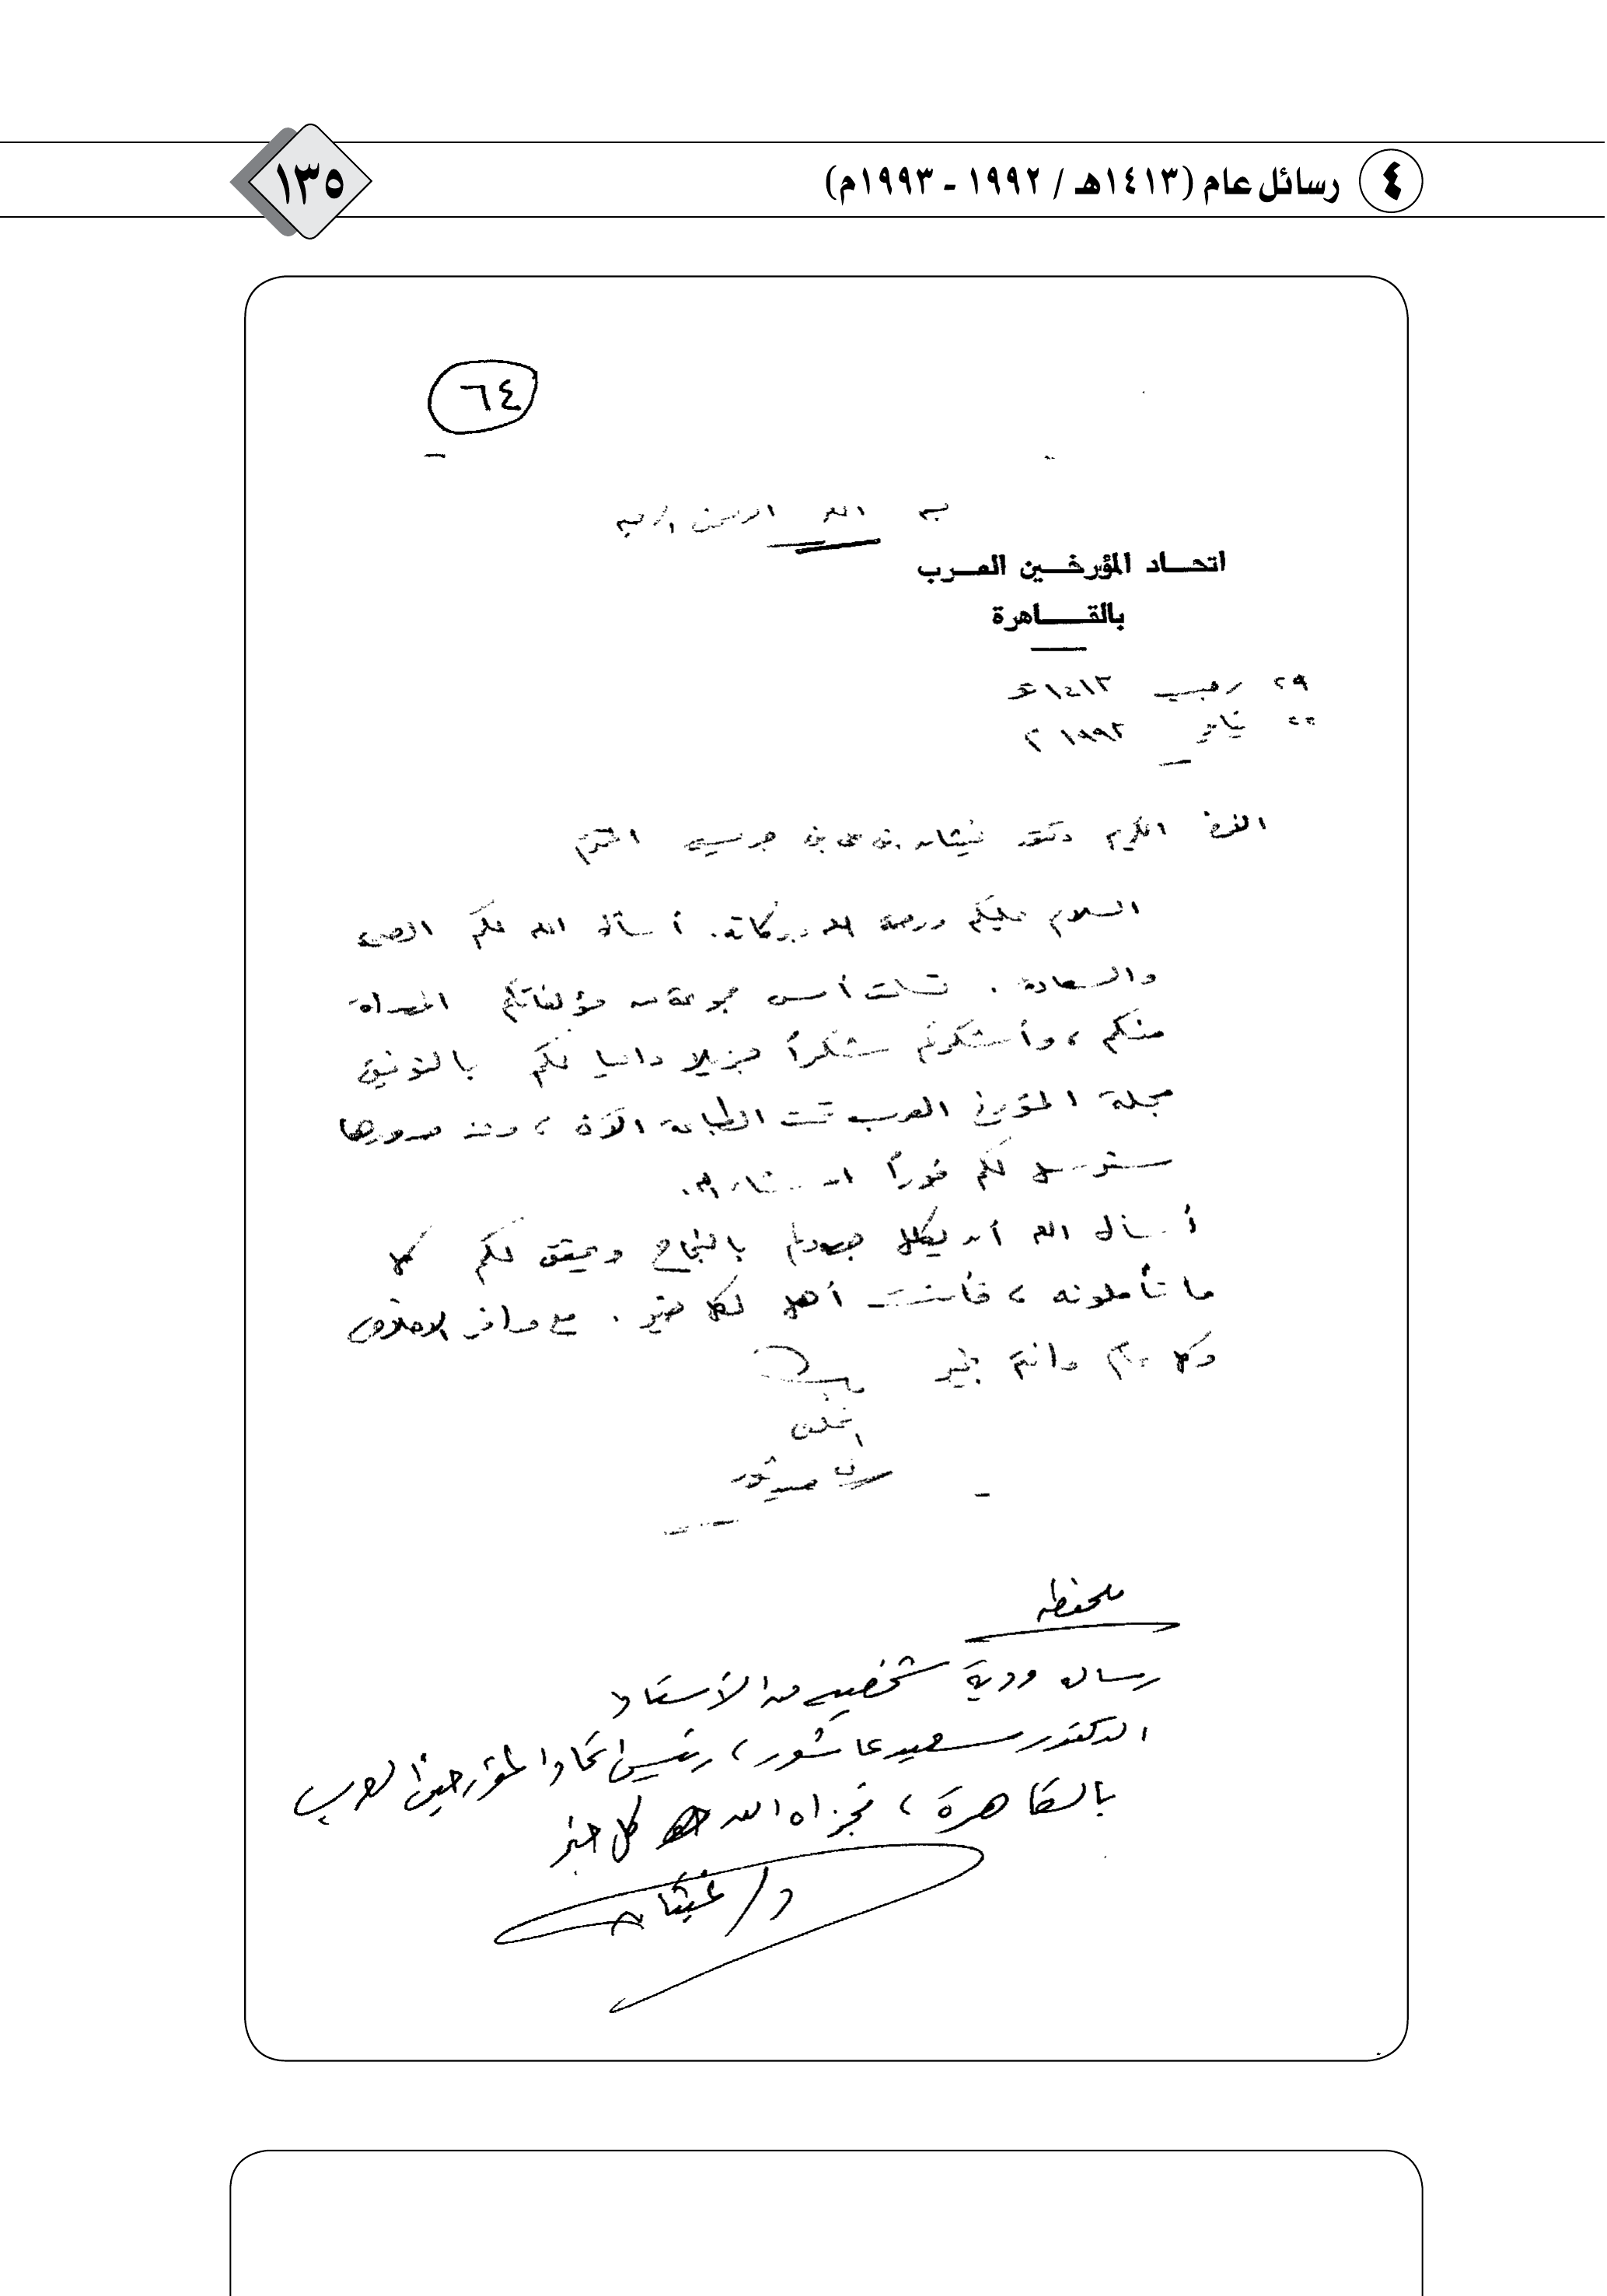 ٤ رسائل عام (١٤١٣هـ / ١٩٩٢ - ١٩٩٣م)
١٣٥
٦٤
بسم الله الرحمن الرحيم
اتحــاد المؤرخــين العــرب
بالقـــاهرة
٢٩ رجب ١٤١٣هـ
٢٢ يناير ١٩٩٣م
الأخ الكريم دكتور غيثان بن علي بن جريس المحترم
السلام عليكم ورحمة الله وبركاته. أسأل الله لكم الصحة
والسعادة. تسلمت أمس مجموعة من مؤلفاتكم المهداة
منكم، وأشكركم شكراً جزيلا داعيا لكم بالتوفيق
مجلة المؤرخ العربي تحت الطباعة الآن، وعند صدورها
سترسل لكم فوراً إن شاء الله.
أسأل الله أن يكلل جهودكم بالنجاح ويحقق لكم كل
ما تأملونه، فأنت أهل لكل خير. مع وافر الإخلاص
وكل عام وانتم بخير
المخلص
سعيد عاشور
ملحوظه
رساله ودية شخصيه من الأستاذ
الدكتور سعيد عاشور، رئيس اتحاد المؤرخين العرب
بالقاهرة، فجزاه الله كل خير
د/ غيثان